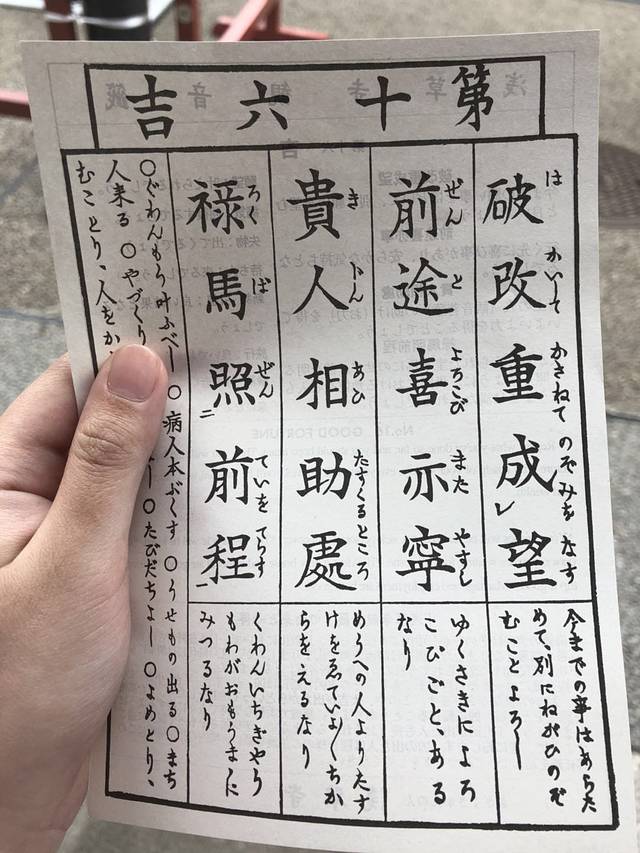 第十六吉
破改重成レ望
は かいて かさねて のぞみを なす
今までの事はあらた
めて、別にねがひのぞ
むことよろし
前途喜亦寧
ぜん と よろこび また やすし
ゆくさきによろ
こびごと、ある
なり
貴人相助處
き にん あひ たすくるところ
めうへの人よりたす
けをゑていよ〱ちか
らをえるなり
禄馬照二前程一
ろく ば ぜん ていを てらす
くわんいちぎやう
もわがおもうまゝに
みつるなり
○ぐわんもう叶ふべし ○病人本ぶくす ○うせもの出る ○まち
人来る ○やづくり し ○たびだちよし ○よめとり、
むことり、人をか